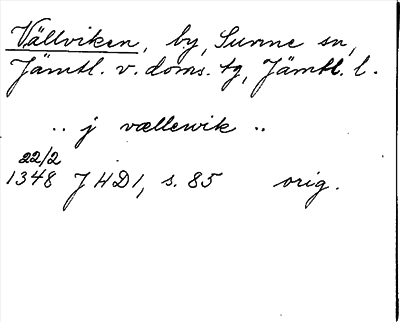 Vällviken, by, Sunne sn,
Jämtl. v. doms. tg, Jämtl. l.
.. j vællewik ..
22/2
1348 JHD1, s. 85 orig.